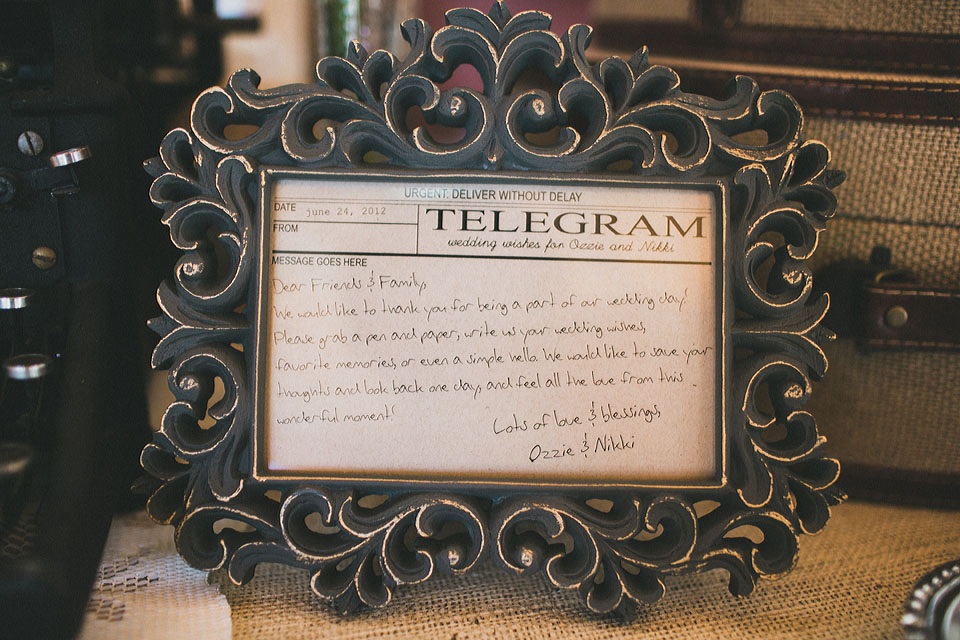 URGENT: DELIVER WITHOUT DELAY
DATE june 24, 2012
FROM
TELEGRAM
wedding wishes for Ozzie and Nikki
MESSAGE GOES HERE
Dear Friends & Family,
We would like to thank you for being a part of our wedding day!
Please grab a pen and paper, write us your wedding wishes,
favorite memories, or even a simple hello. We would like to save your
thoughts and look back one day, and feel all the love from this
wonderful moment!
Lots of love & blessings,
Ozzie & Nikki